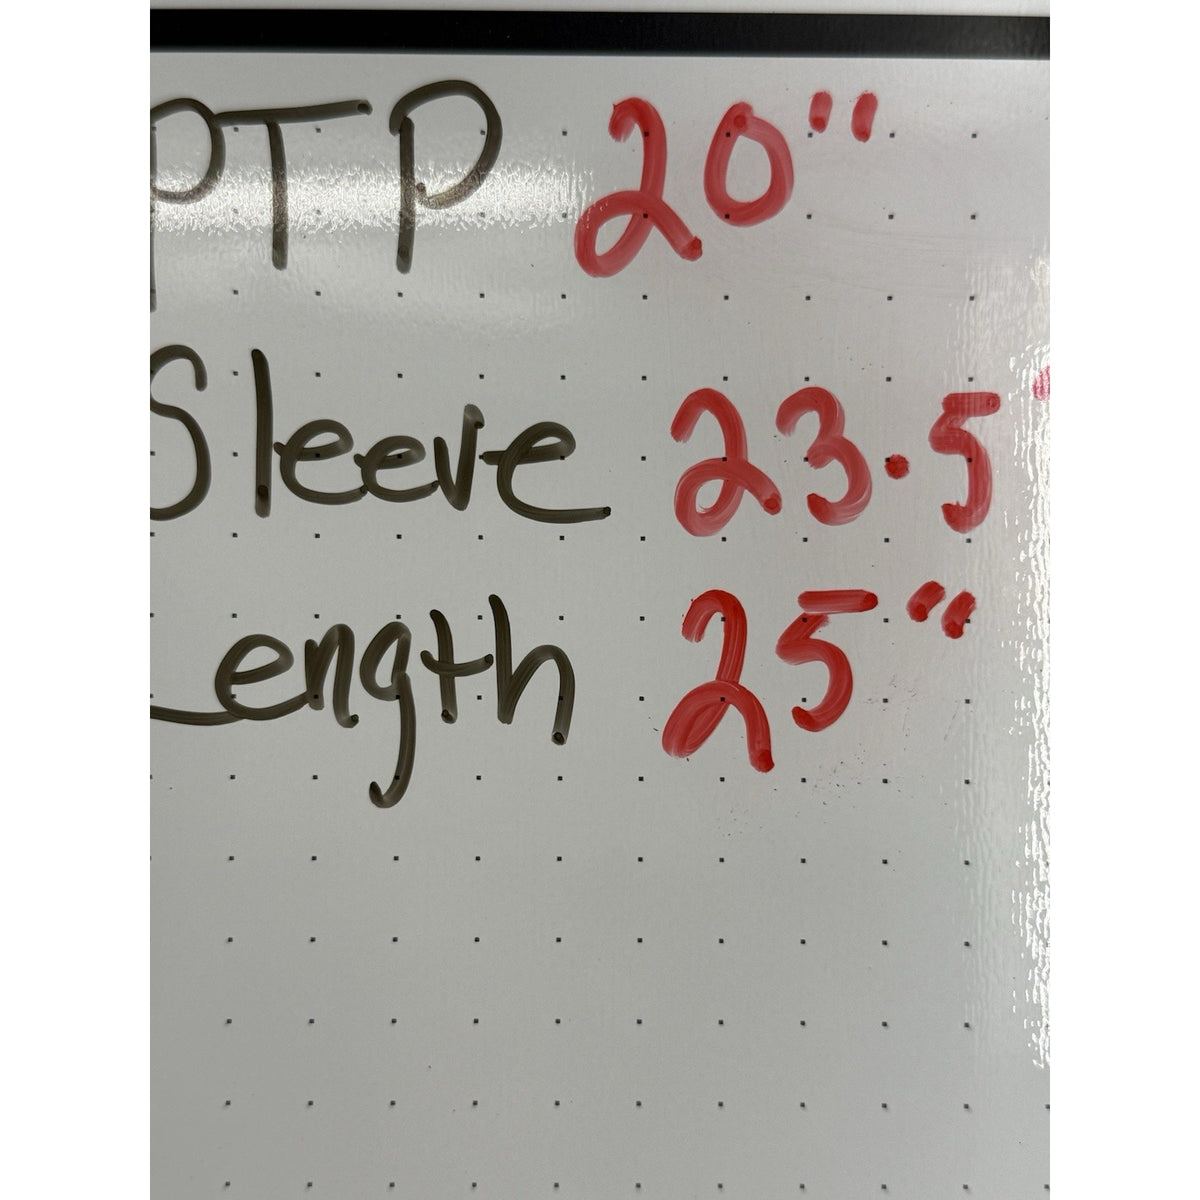 PTP 20"
Sleeve 23.5"
Length 25"